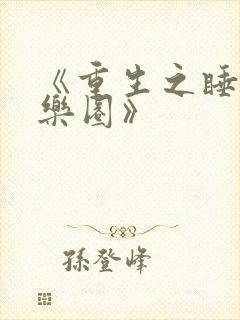 《重生之睡
樂園》
孫登峰